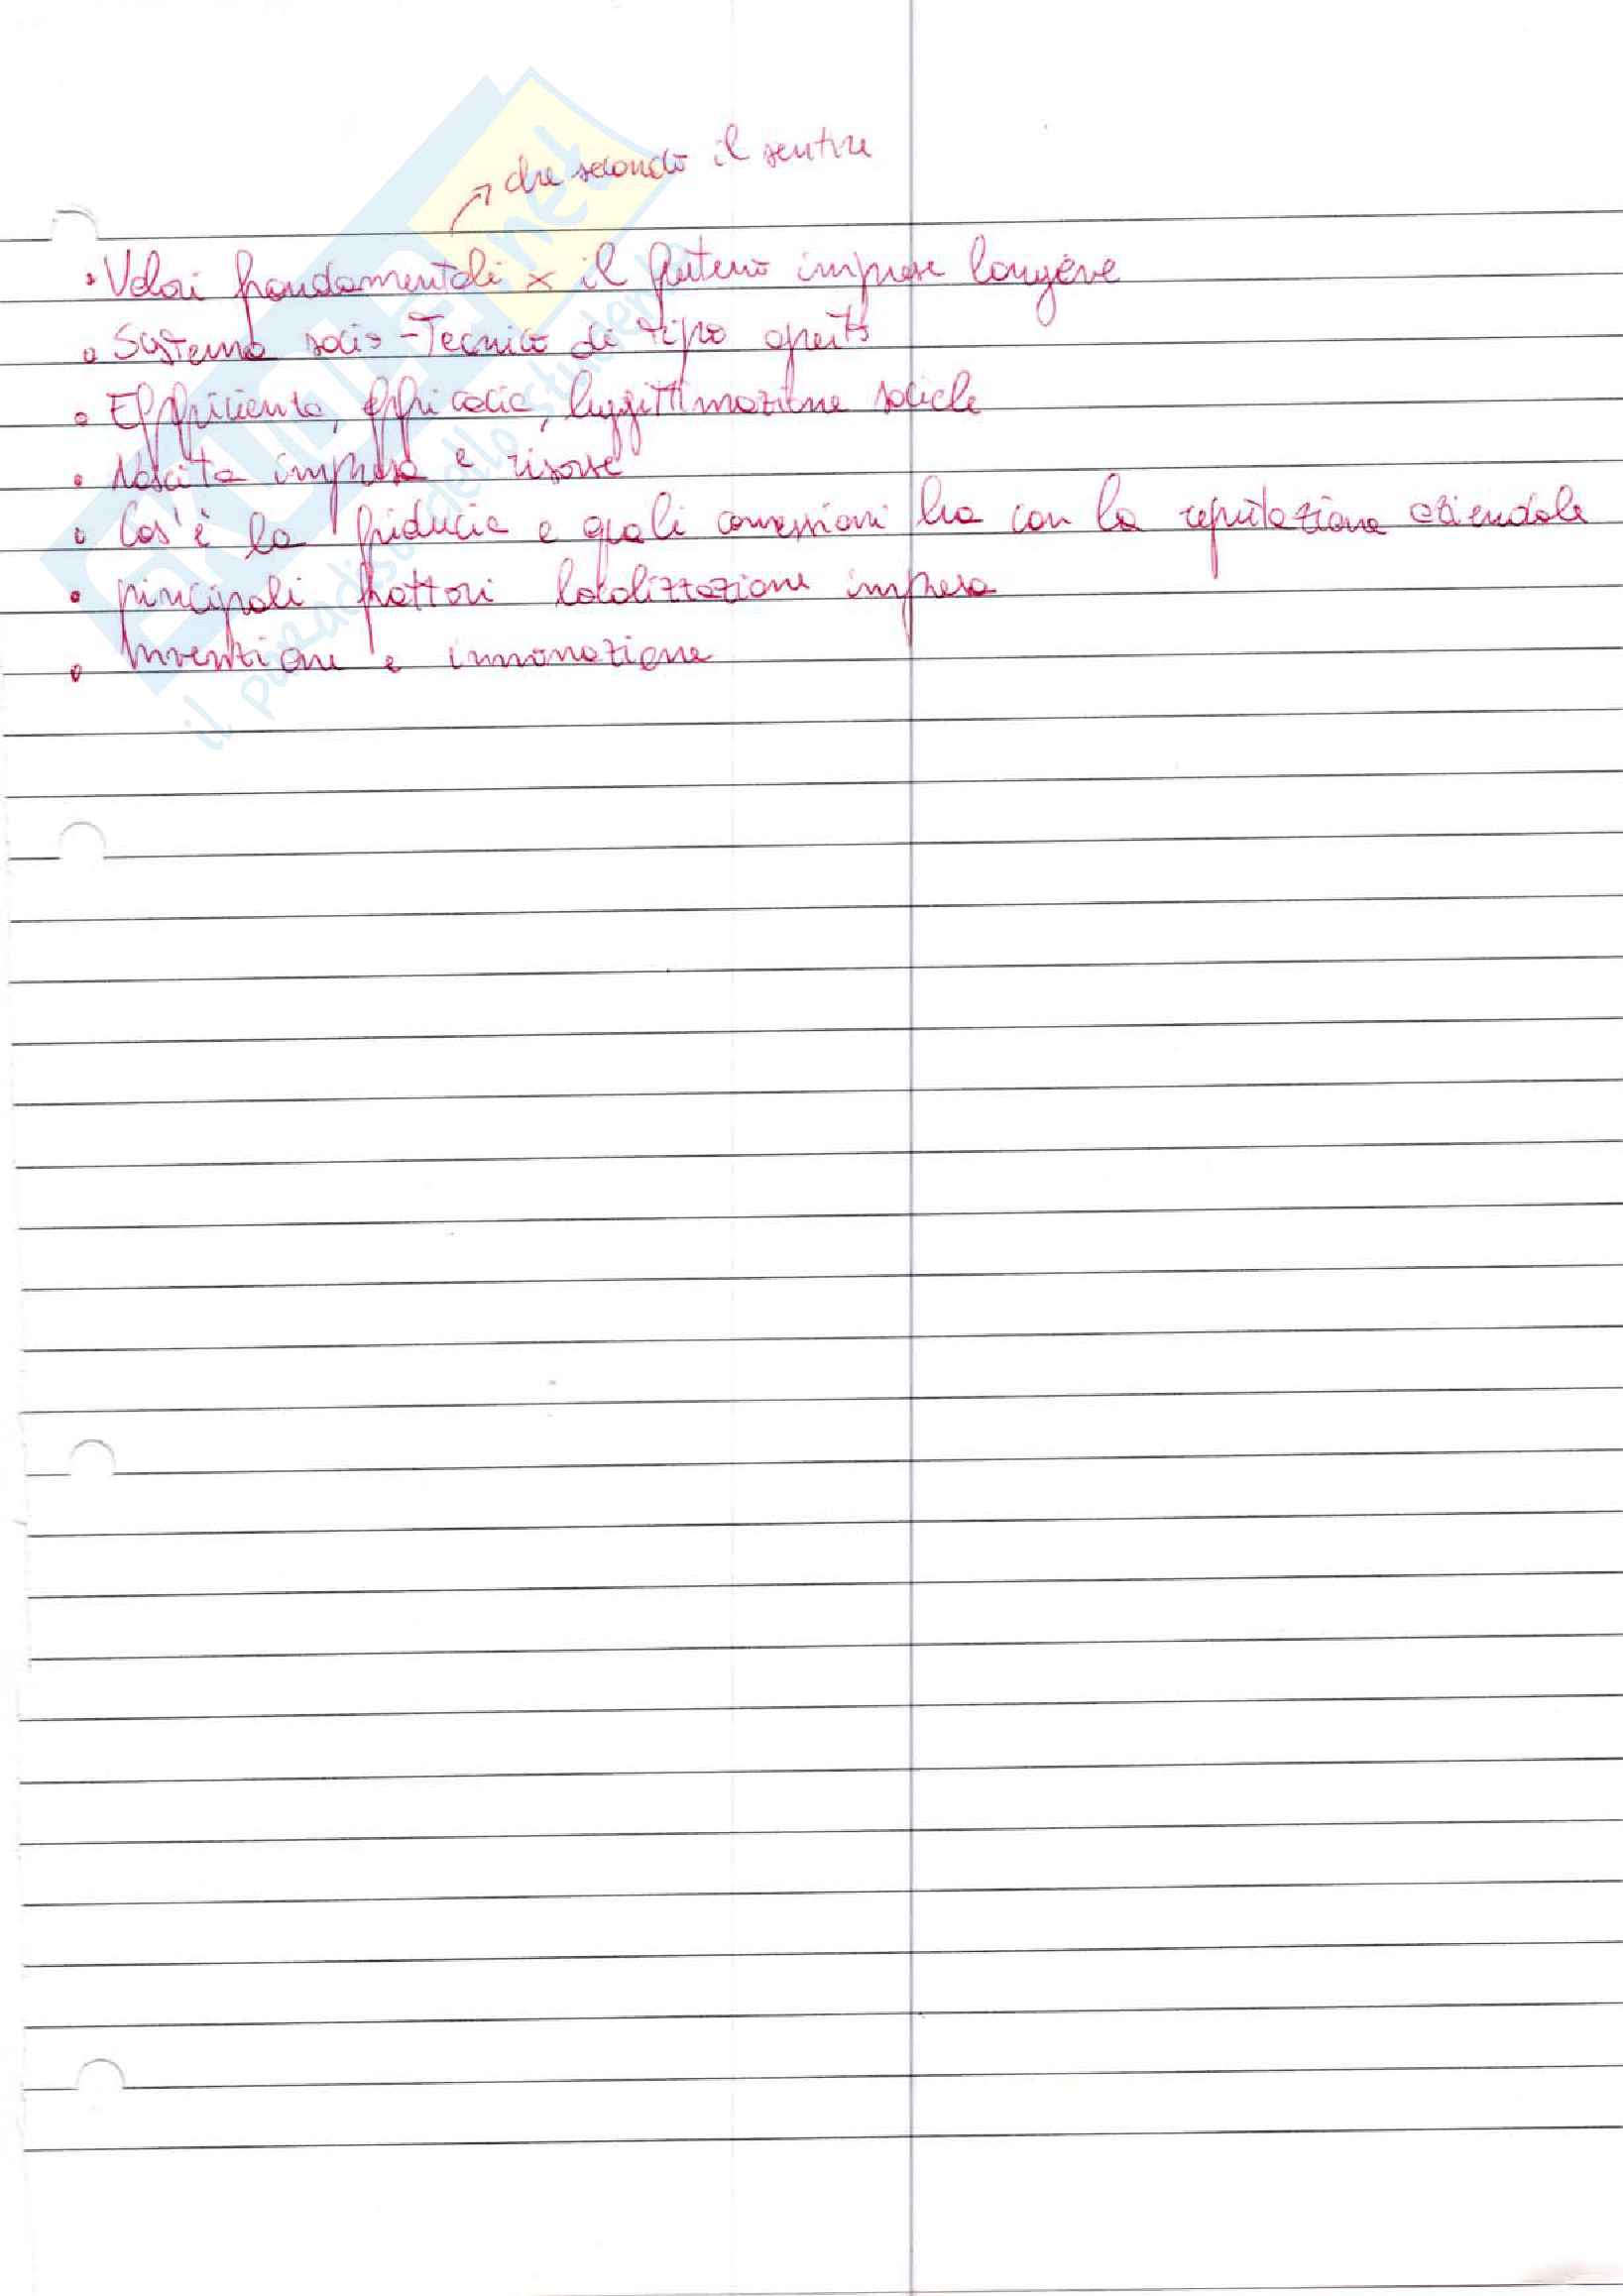 che secondo il sentire
• Valori fondamentali x il futuro imprese longeve
• Sistema socio-tecnico di tipo aperto
• Efficienza, efficacia, leggittimazione sociale
• Nascita impresa e risorse
• Cos'è la fiducia e quali connessioni ha con la reputazione aziendale
• principali fattori localizzazione impresa
• Invenzione e innovazione
SKUOLA.net
il paradiso dello studente